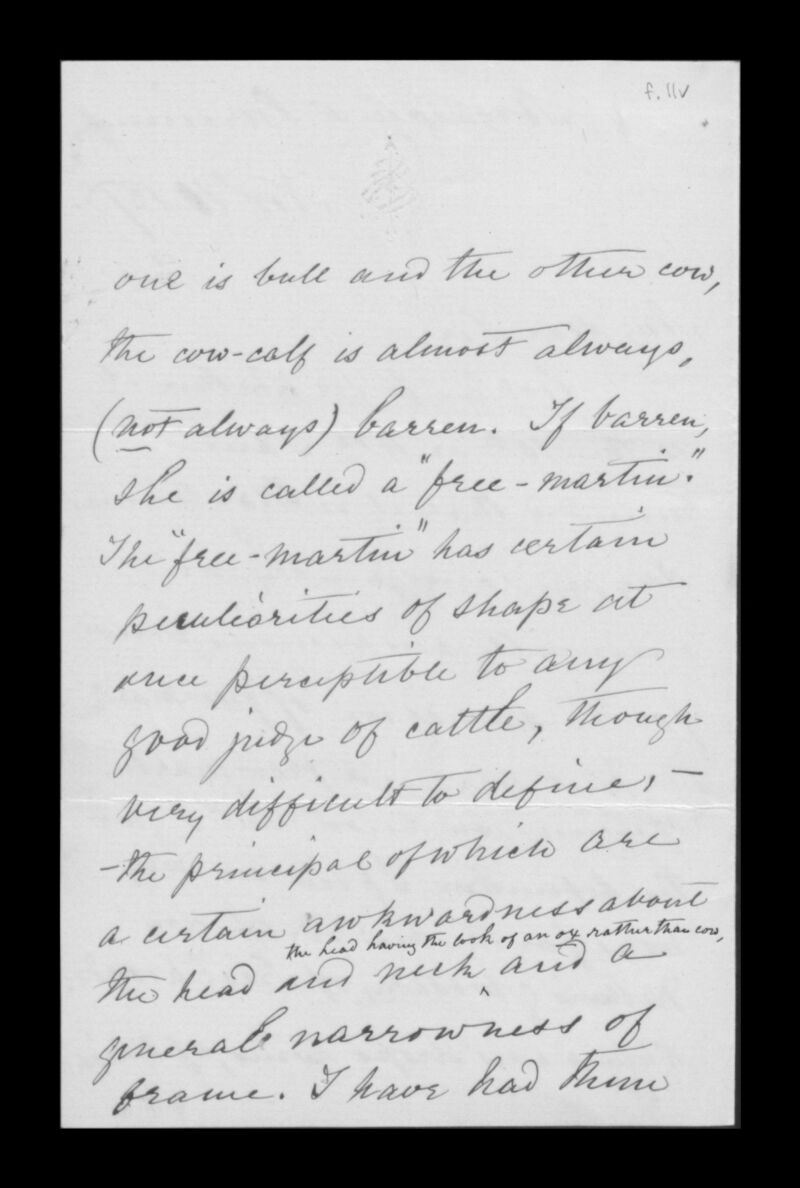 f.11v
one is bull and the other cow,
the cow-calf is almost always,
(not always) barren. If barren,
she is called a "free-martin."
The "free-martin" has certain
peculiarities of shape at
once perceptible to any
good judge of cattle, though
very difficult to define, —
— the principal of which are
a certain awkwardness about
the head having the look of an ox rather than cow,
the head and neck and a
general narrowness of
frame. I have had them